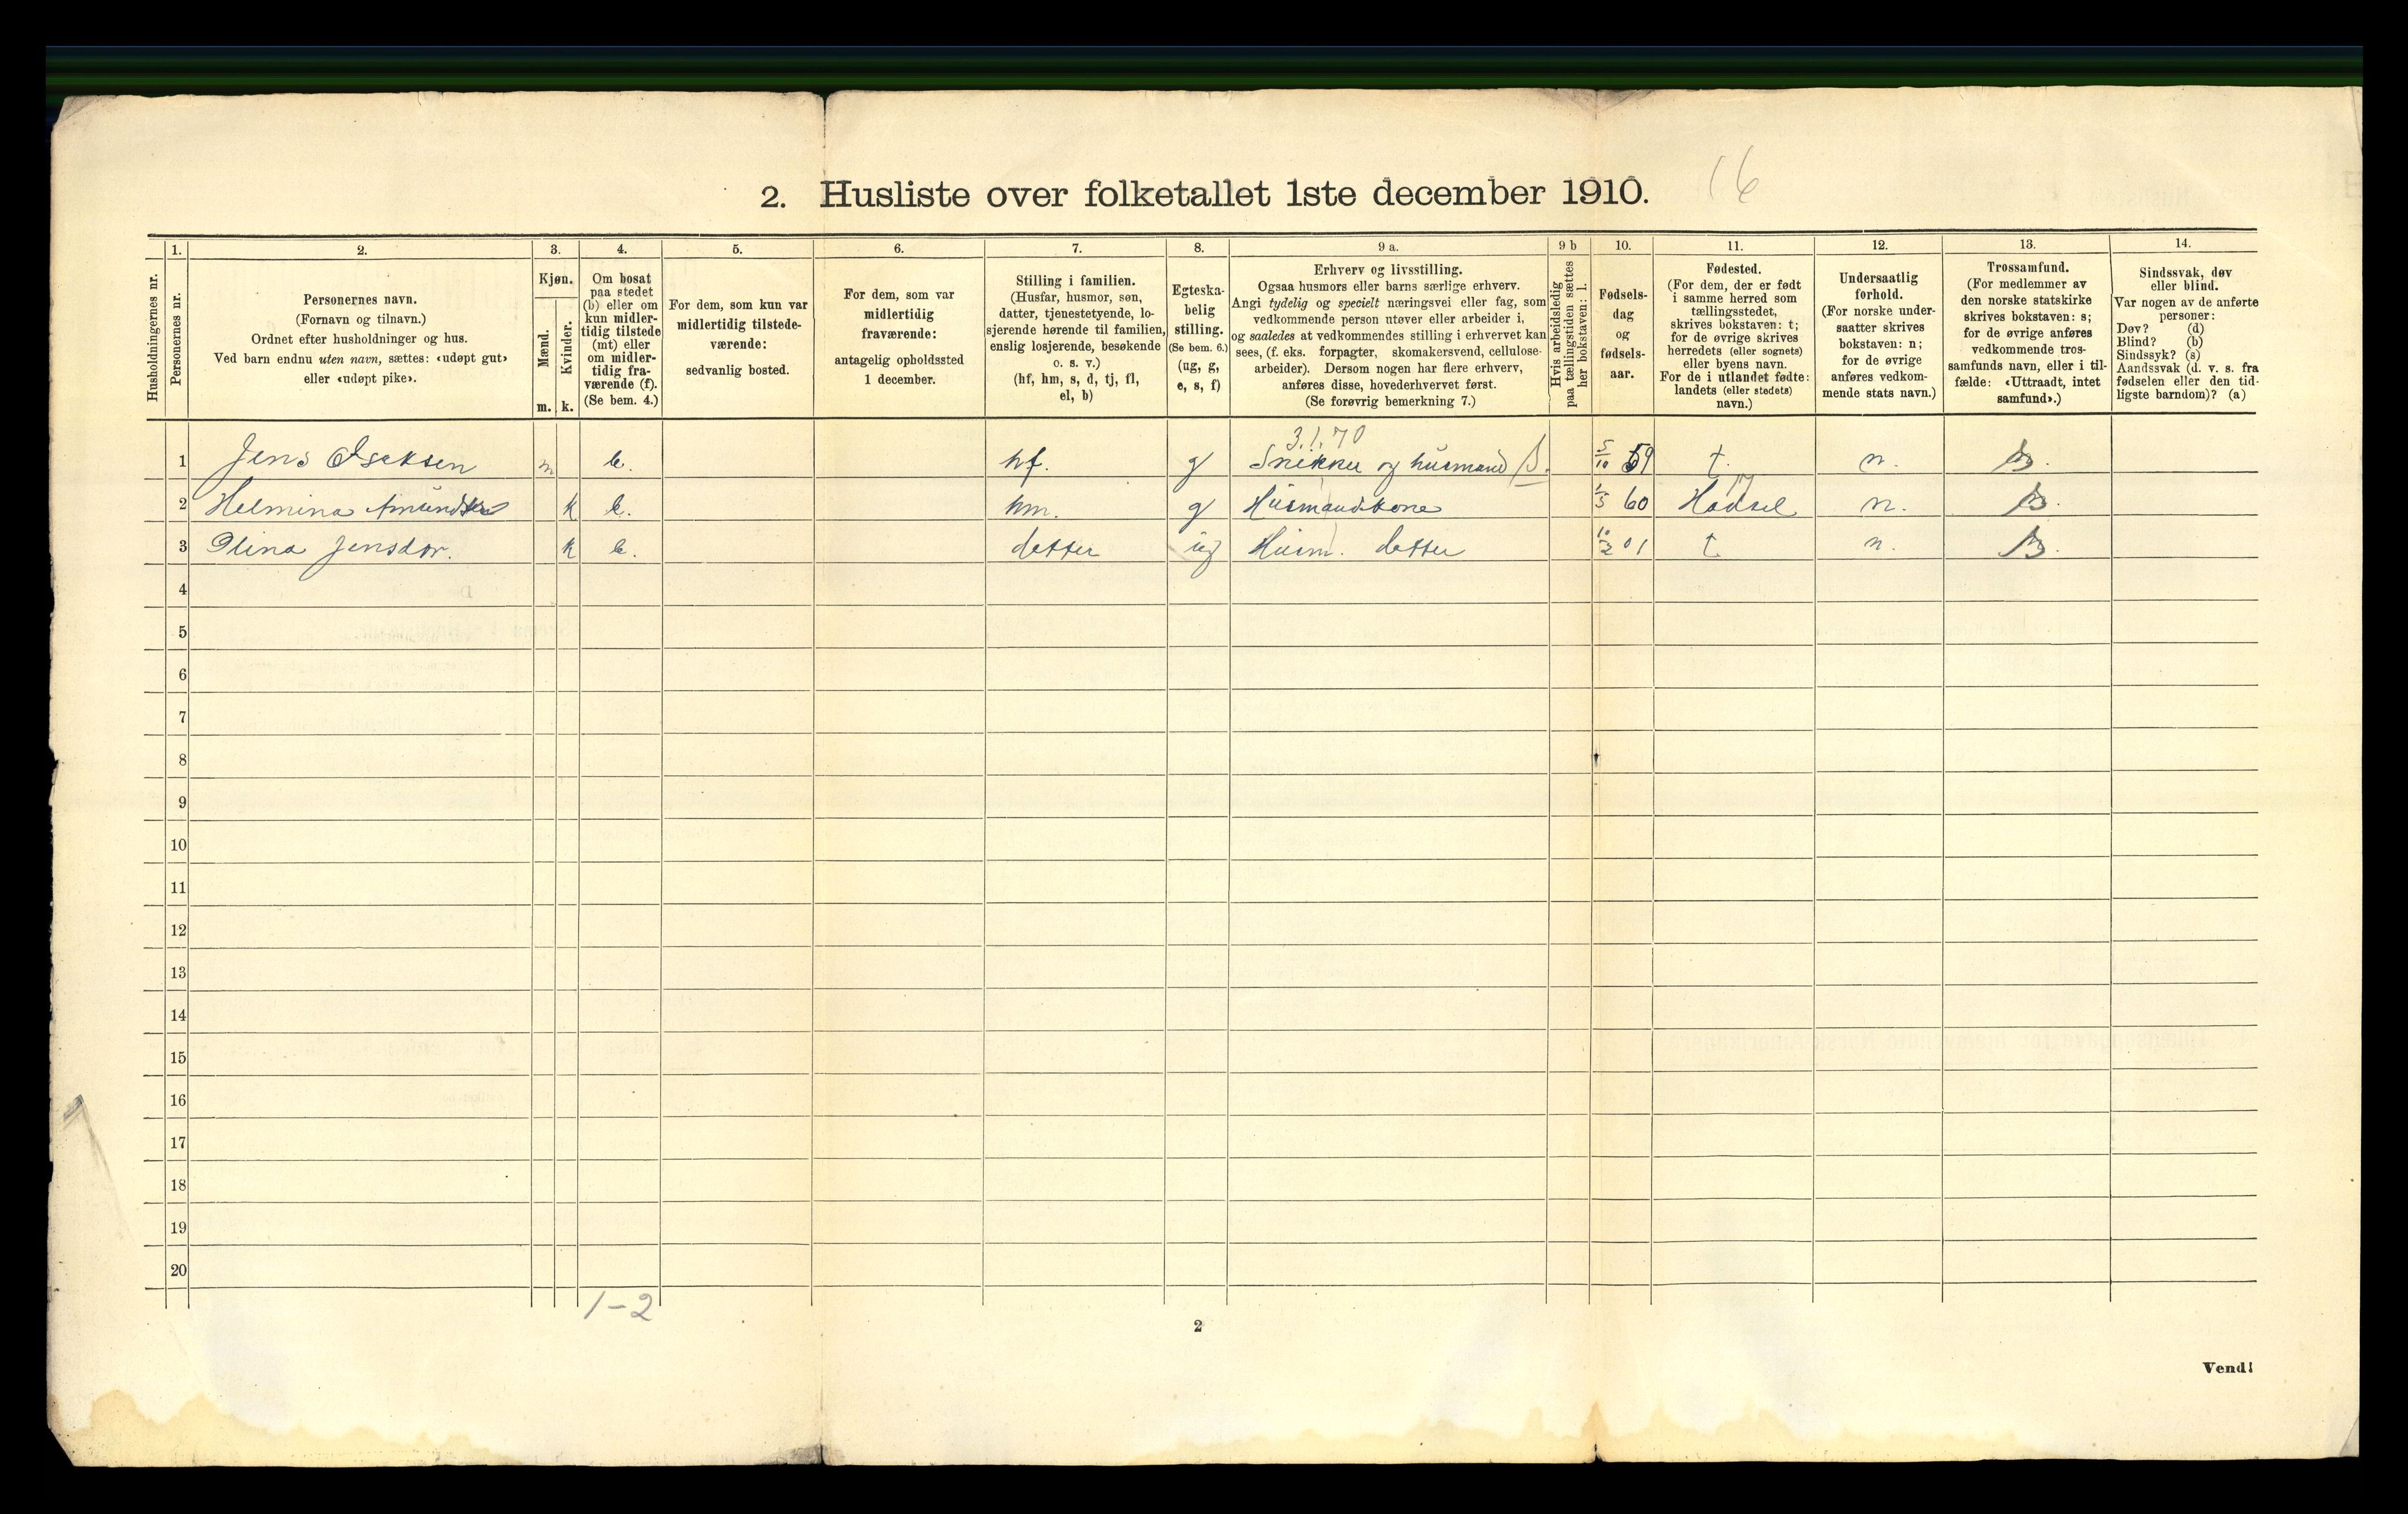 2. Husliste over folketallet 1ste december 1910. 16
Husholdningernes nr.
1.
Personernes nr.
2.
Personernes navn.
(Fornavn og tilnavn.)
Ordnet efter husholdninger og hus.
Ved barn endnu uten navn, sættes: «udøpt gut»
eller «udøpt pike».
3.
Kjøn.
Mænd.
Kvinder.
m. k.
4.
Om bosat
paa stedet
(b) eller om
kun midler-
tidig tilstede
(mt) eller
om midler-
tidig fra-
værende (f).
(Se bem. 4.)
5.
For dem, som kun var
midlertidig tilstede-
værende:
sedvanlig bosted.
6.
For dem, som var
midlertidig
fraværende:
antagelig opholdssted
1 december.
7.
Stilling i familien.
(Husfar, husmor, søn,
datter, tjenestetyende, lo-
sjerende hørende til familien,
enslig losjerende, besøkende
o. s. v.)
(hf, hm, s, d, tj, fl,
el, b)
8.
Egteska-
belig
stilling.
(Se bem. 6.)
(ug, g,
e, s, f)
9 a.
Erhverv og livsstilling.
Ogsaa husmors eller barns særlige erhverv.
Angi tydelig og specielt næringsvei eller fag, som
vedkommende person utøver eller arbeider i,
og saaledes at vedkommendes stilling i erhvervet kan
sees, (f. eks. forpagter, skomakersvend, cellulose-
arbeider). Dersom nogen har flere erhverv,
anføres disse, hovederhvervet først.
(Se forøvrig bemerkning 7.)
9 b
Hvis arbeidsledig
paa tællingstiden sættes
her bokstaven: l.
10.
Fødsels-
dag
og
fødsels-
aar.
11.
Fødested.
(For dem, der er født
i samme herred som
tællingsstedet,
skrives bokstaven: t;
for de øvrige skrives
herredets (eller sognets)
eller byens navn.
For de i utlandet fødte:
landets (eller stedets)
navn.)
12.
Undersaatlig
forhold.
(For norske under-
saatter skrives
bokstaven: n;
for de øvrige
anføres vedkom-
mende stats navn.)
13.
Trossamfund.
(For medlemmer av
den norske statskirke
skrives bokstaven: s;
for de øvrige anføres
vedkommende tros-
samfunds navn, eller i til-
fælde: «Uttraadt, intet
samfund».)
14.
Sindssvak, døv
eller blind.
Var nogen av de anførte
personer:
Døv? (d)
Blind? (b)
Sindssyk? (s)
Aandssvak (d. v. s. fra
fødselen eller den tid-
ligste barndom)? (a)
3.1.70
1 Jens Isaksen m b. hf. g Snekker og husmand 5/10 59 t. n. s.
17
2 Helmina k b. hm. g Husmandskone 1/5 60 Hadsel n. s.
3 Olina Jensdtr. k b. datter ug Husm. datter 10/2 01 t n. s.
4
5
6
7
8
9
10
11
12
13
14
15
16
17
18
19
20
1-2
2
Vend!